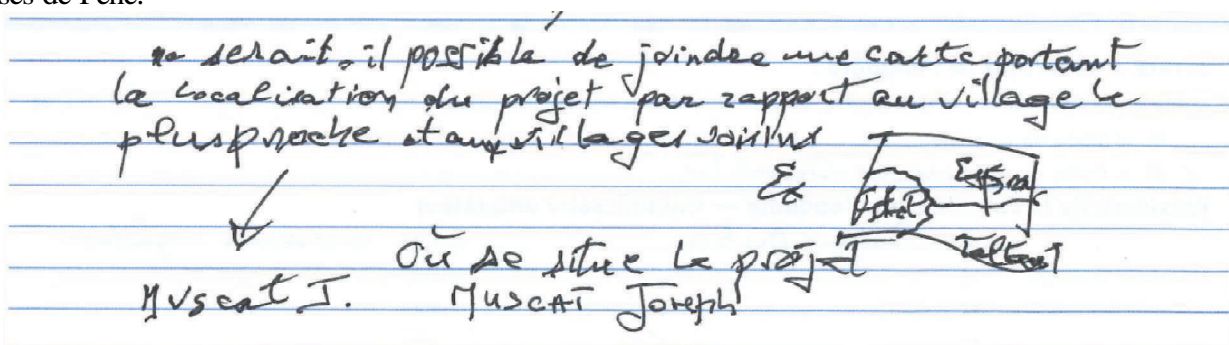 ses de
ne serait.il possible de joindre une carte portant
la localisation du projet par rapport au village le
plus proche et aux villages voisins
Ex
Où se situe le projet
Muscat J. MUSCAT Joseph